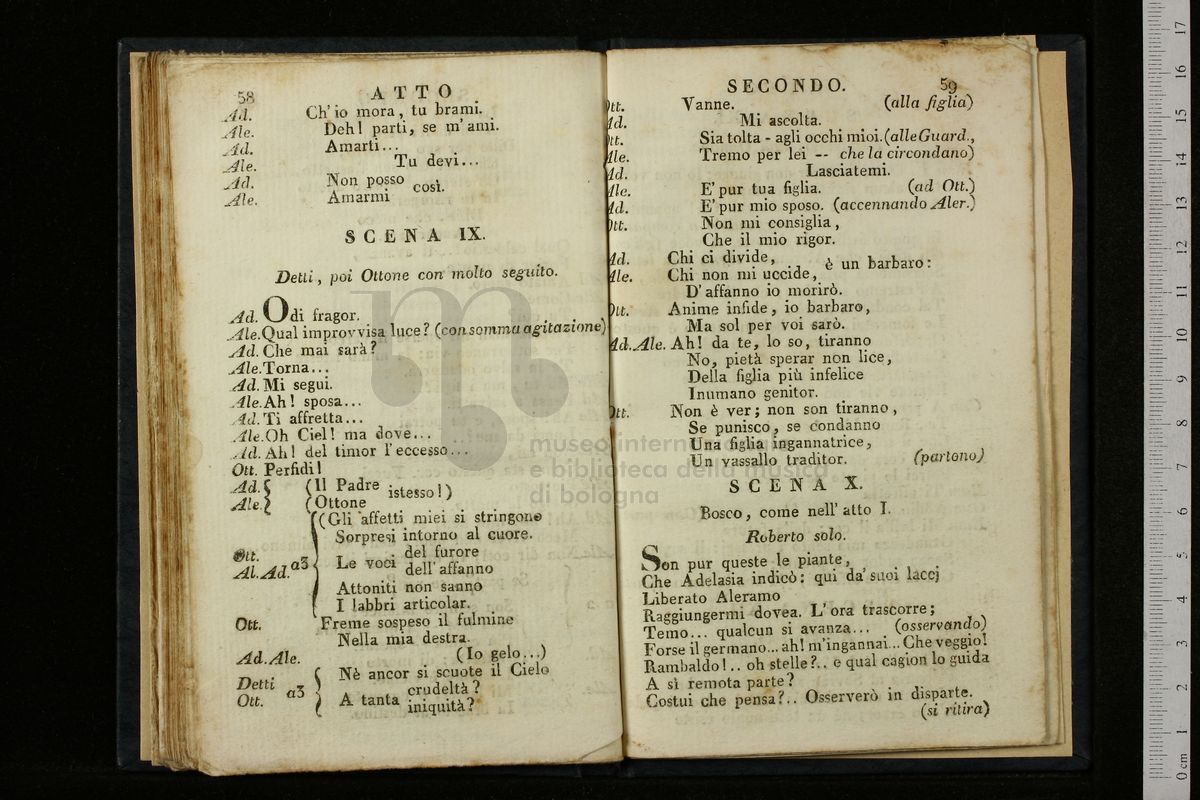 58
ATTO
Ad. Ch' io mora, tu brami.
Ale. Deh! parti, se m' ami.
Ad. Amarti...
Ale. Tu devi...
Ad. Non posso
così.
Ale. Amarmi
SCENA IX.
Detti, poi Ottone con molto seguito.
Ad. Odi fragor.
Ale. Qual improvvisa luce? (con somma agitazione)
Ad. Che mai sarà?
Ale. Torna...
Ad. Mi segui.
Ale. Ah! sposa...
Ad. Ti affretta...
Ale. Oh Ciel! ma dove...
Ad. Ah! del timor l'eccesso...
Ott. Perfidi!
Ad. (Il Padre
istesso!)
Ale. (Ottone
(Gli affetti miei si stringono
Sorpresi intorno al cuore.
Ott. del furore
Al. Ad. a3 Le voci dell' affanno
Attoniti non sanno
I labbri articolar.
Ott. Freme sospeso il fulmine
Nella mia destra.
Ad. Ale. (Io gelo...)
Detti Nè ancor si scuote il Cielo
Ott. a3 A tanta crudeltà?
iniquità?
SECONDO. 59
Ott. Vanne. (alla figlia)
Ad. Mi ascolta.
Ott. Sia tolta - agli occhi miei. (alle Guard.,
Ale. Tremo per lei -- che la circondano)
Ad. Lasciatemi.
Ale. E' pur tua figlia. (ad Ott.)
Ad. E' pur mio sposo. (accennando Aler.)
Ott. Non mi consiglia,
Che il mio rigor.
Ad. Chi ci divide,
è un barbaro:
Ale. Chi non mi uccide,
D' affanno io morirò.
Ott. Anime infide, io barbaro,
Ma sol per voi sarò.
Ad. Ale. Ah! da te, lo so, tiranno
No, pietà sperar non lice,
Della figlia più infelice
Inumano genitor.
Ott. Non è ver; non son tiranno,
Se punisco, se condanno
Una figlia ingannatrice,
Un vassallo traditor. (partono)
SCENA X.
Bosco, come nell' atto I.
Roberto solo.
Son pur queste le piante,
Che Adelasia indicò: qui da' suoi laccj
Liberato Aleramo
Raggiungermi dovea. L' ora trascorre;
Temo... qualcun si avanza... (osservando)
Forse il germano... ah! m'ingannai... Che veggio!
Rambaldo!.. oh stelle?.. e qual cagion lo guida
A sì remota parte?
Costui che pensa?.. Osserverò in disparte.
(si ritira)
museo internazionale
e biblioteca della musica
di bologna
0 cm 1 2 3 4 5 6 7 8 9 10 11 12 13 14 15 16 17